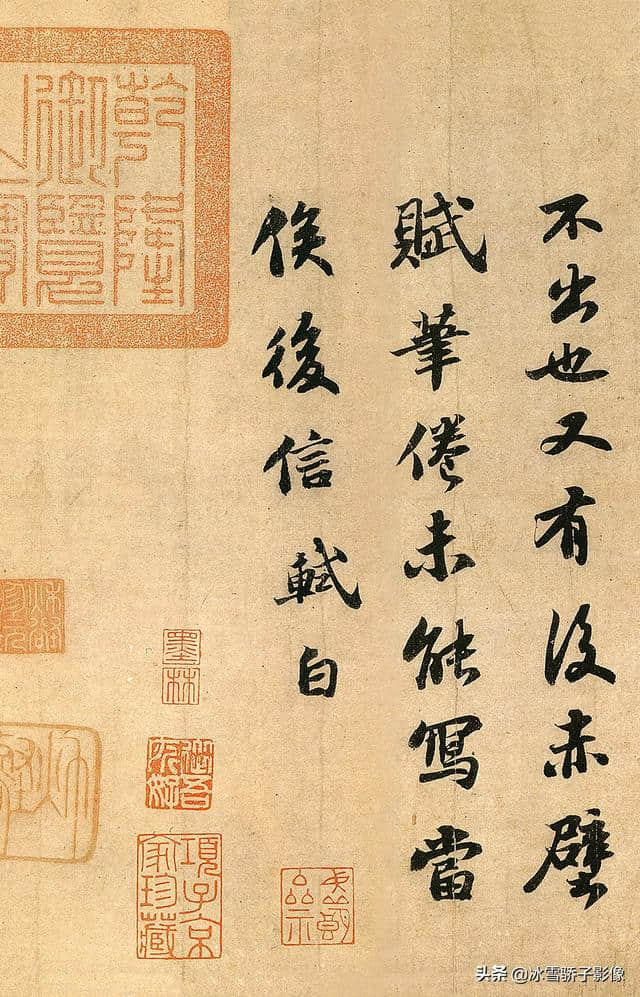 不出也又有後赤壁
賦筆倦未能寫當
俟後信軾白
乾隆
御覽
墨林
項子京
家珍藏
头条 @冰雪骄子影像